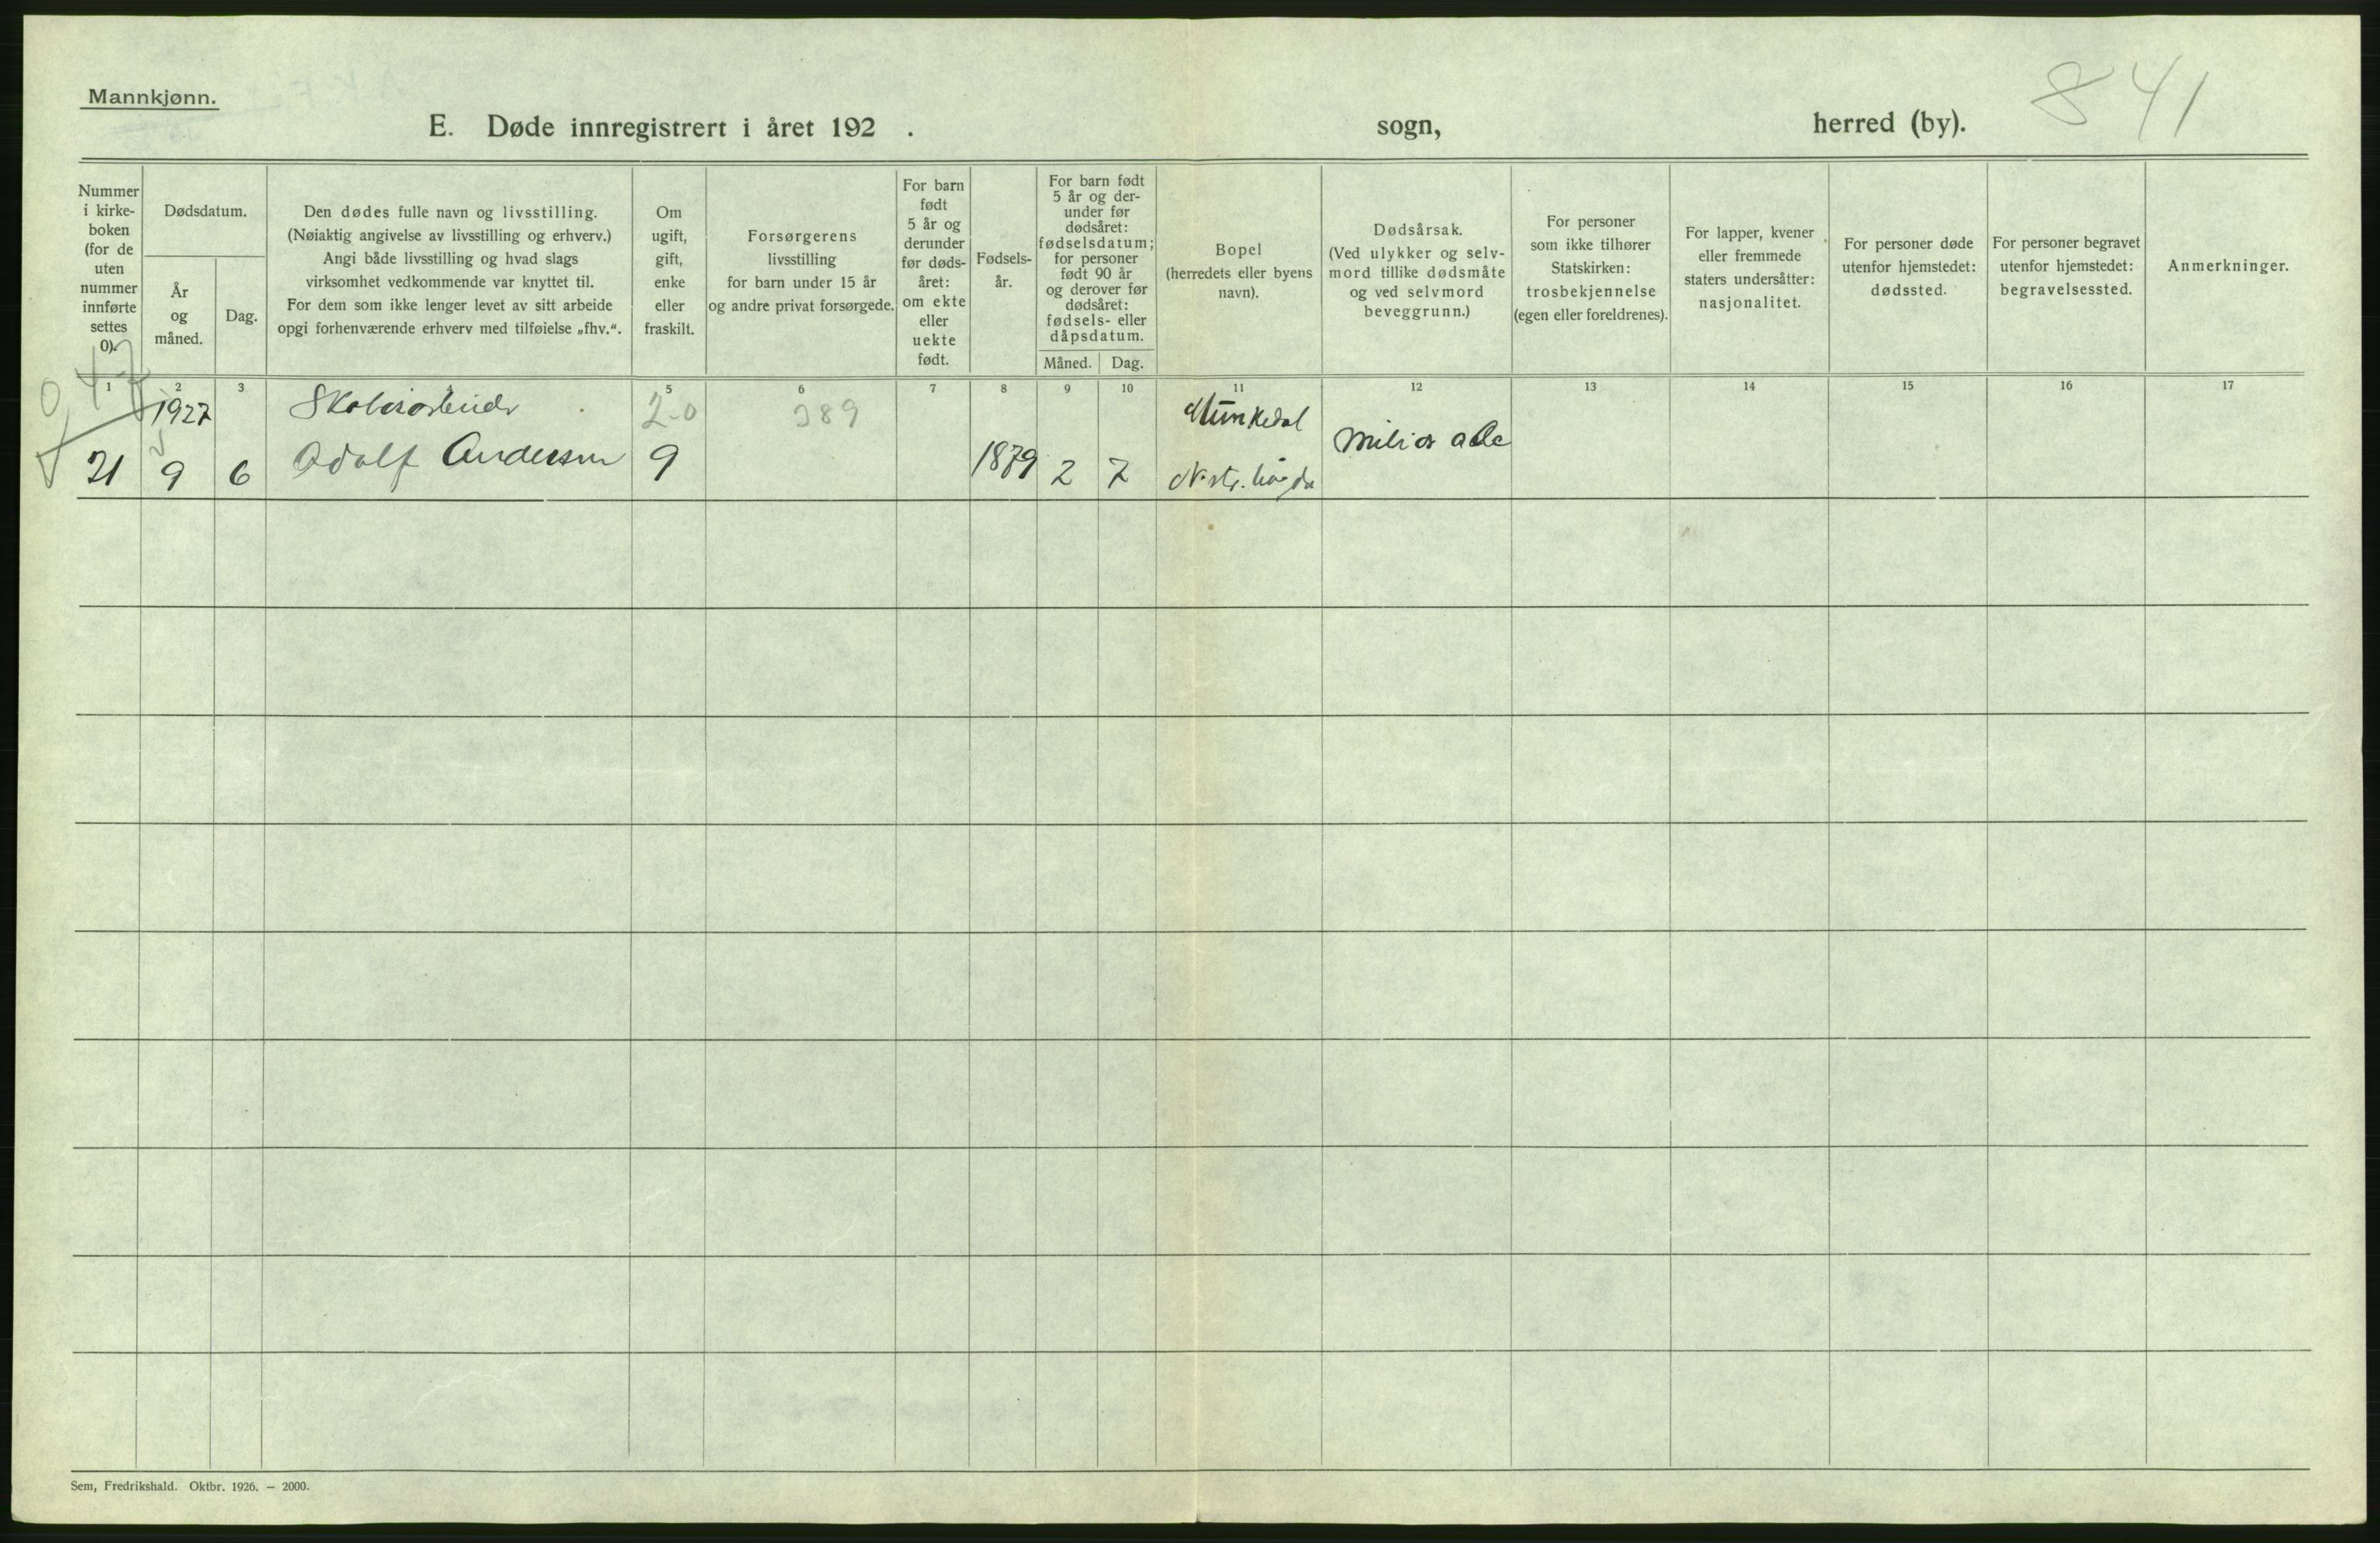 Mannkjønn.
841
E. Døde innregistrert i året 192 . sogn, herred (by).
Nummer
i kirke-
boken
(for de
uten
nummer
innførte
settes
0).
Dødsdatum.
År
og
måned.
Dag.
Den dødes fulle navn og livsstilling.
(Nøiaktig angivelse av livsstilling og erhverv.)
Angi både livsstilling og hvad slags
virksomhet vedkommende var knyttet til.
For dem som ikke lenger levet av sitt arbeide
opgi forhenværende erhverv med tilføielse „fhv.“.
Om
ugift,
gift,
enke
eller
fraskilt.
Forsørgerens
livsstilling
for barn under 15 år
og andre privat forsørgede.
For barn
født
5 år og
derunder
før døds-
året:
om ekte
eller
uekte
født.
Fødsels-
år.
For barn født
5 år og der-
under før
dødsåret:
fødselsdatum;
for personer
født 90 år
og derover før
dødsåret:
fødsels- eller
dåpsdatum.
Måned. Dag.
Bopel
(herredets eller byens
navn).
Dødsårsak.
(Ved ulykker og selv-
mord tillike dødsmåte
og ved selvmord
beveggrunn.)
For personer
som ikke tilhører
Statskirken:
trosbekjennelse
(egen eller foreldrenes).
For lapper, kvener
eller fremmede
staters undersåtter:
nasjonalitet.
For personer døde
utenfor hjemstedet:
dødssted.
For personer begravet
utenfor hjemstedet:
begravelsessted.
Anmerkninger.
1 2 3 4 5 6 7 8 9 10 11 12 13 14 15 16 17
1927 2-0 389 Munkedal
21 9 6 Adolf Andersen 9 1879 2 7
Sem, Fredrikshald. Oktbr. 1926. — 2000.